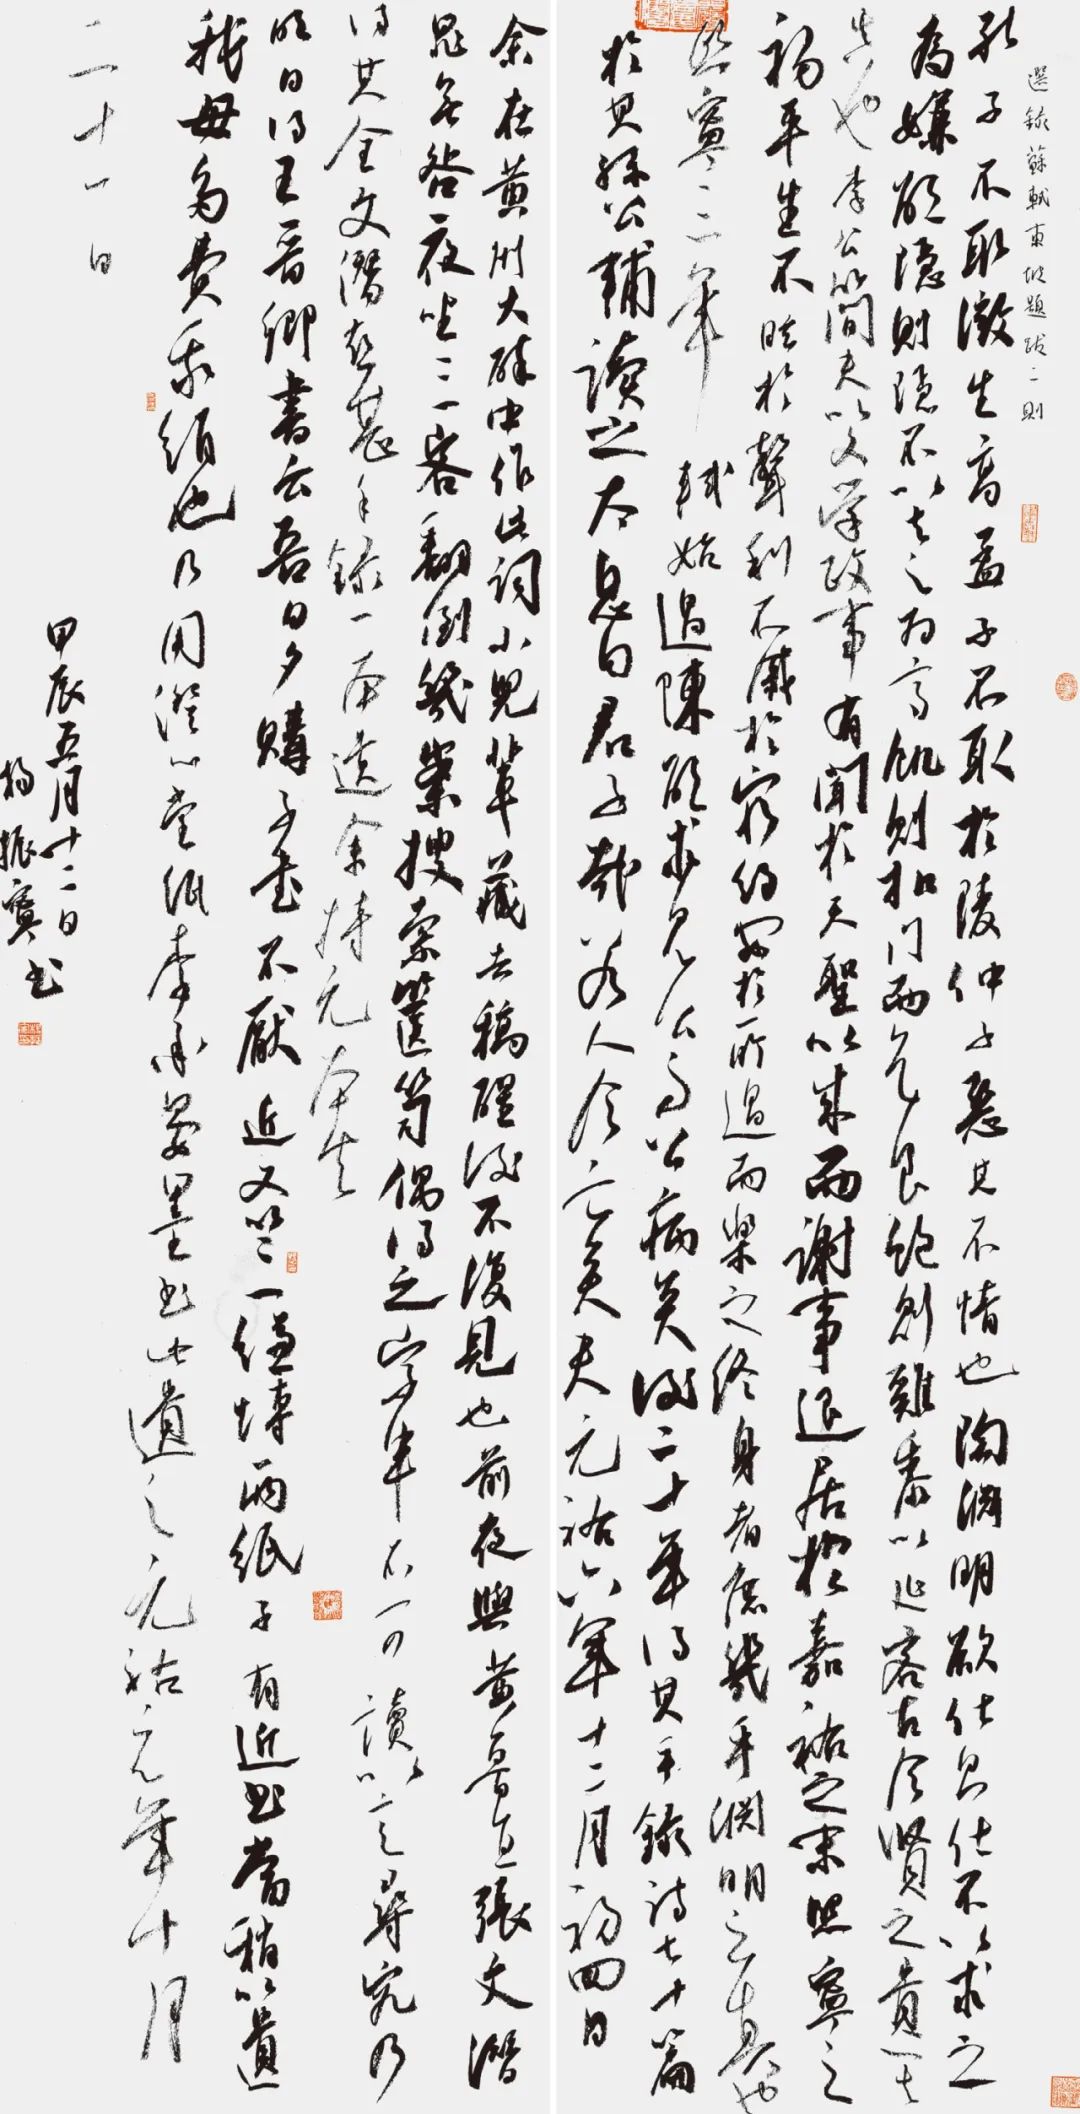 選錄蘇軾東坡題跋二則
孔子不取微生高孟子不取於陵仲子惡其不情也陶淵明欲仕則仕不以求之
為嫌欲隱則隱不以去之為高飢則扣門而乞食飽則雞黍以延客古今賢之貴其
真也李公簡夫以文學政事有聞於天聖以來而謝事退居於嘉祐之末熙寧之
初平生不眩於聲利不戚於窮約安於所遇而樂之終身者庶幾乎淵明之真也
熙寧三年軾始過陳欲求見公而公病矣後二十年得其手錄詩七十篇
於其孫公輔讀之太息曰君子哉若人今亡矣夫元祐六年十二月初四日
余在黃州大醉中作此詞小兒輩藏去稿醒後不復見也前夜與黃魯直張文潛
晁無咎夜坐三客翻倒几案搜索篋笥偶得之字半不可讀以意尋究乃
得其全文潛喜甚手錄一本遺余持元本去
明日得王晉卿書云吾日夕購子書不厭近又以三縑博兩紙子有近書當稍以遺
我毋多費我絹也乃用澄心堂紙李承晏墨書此遺之元祐元年十月
二十一日
甲辰五月十二日
楊振書